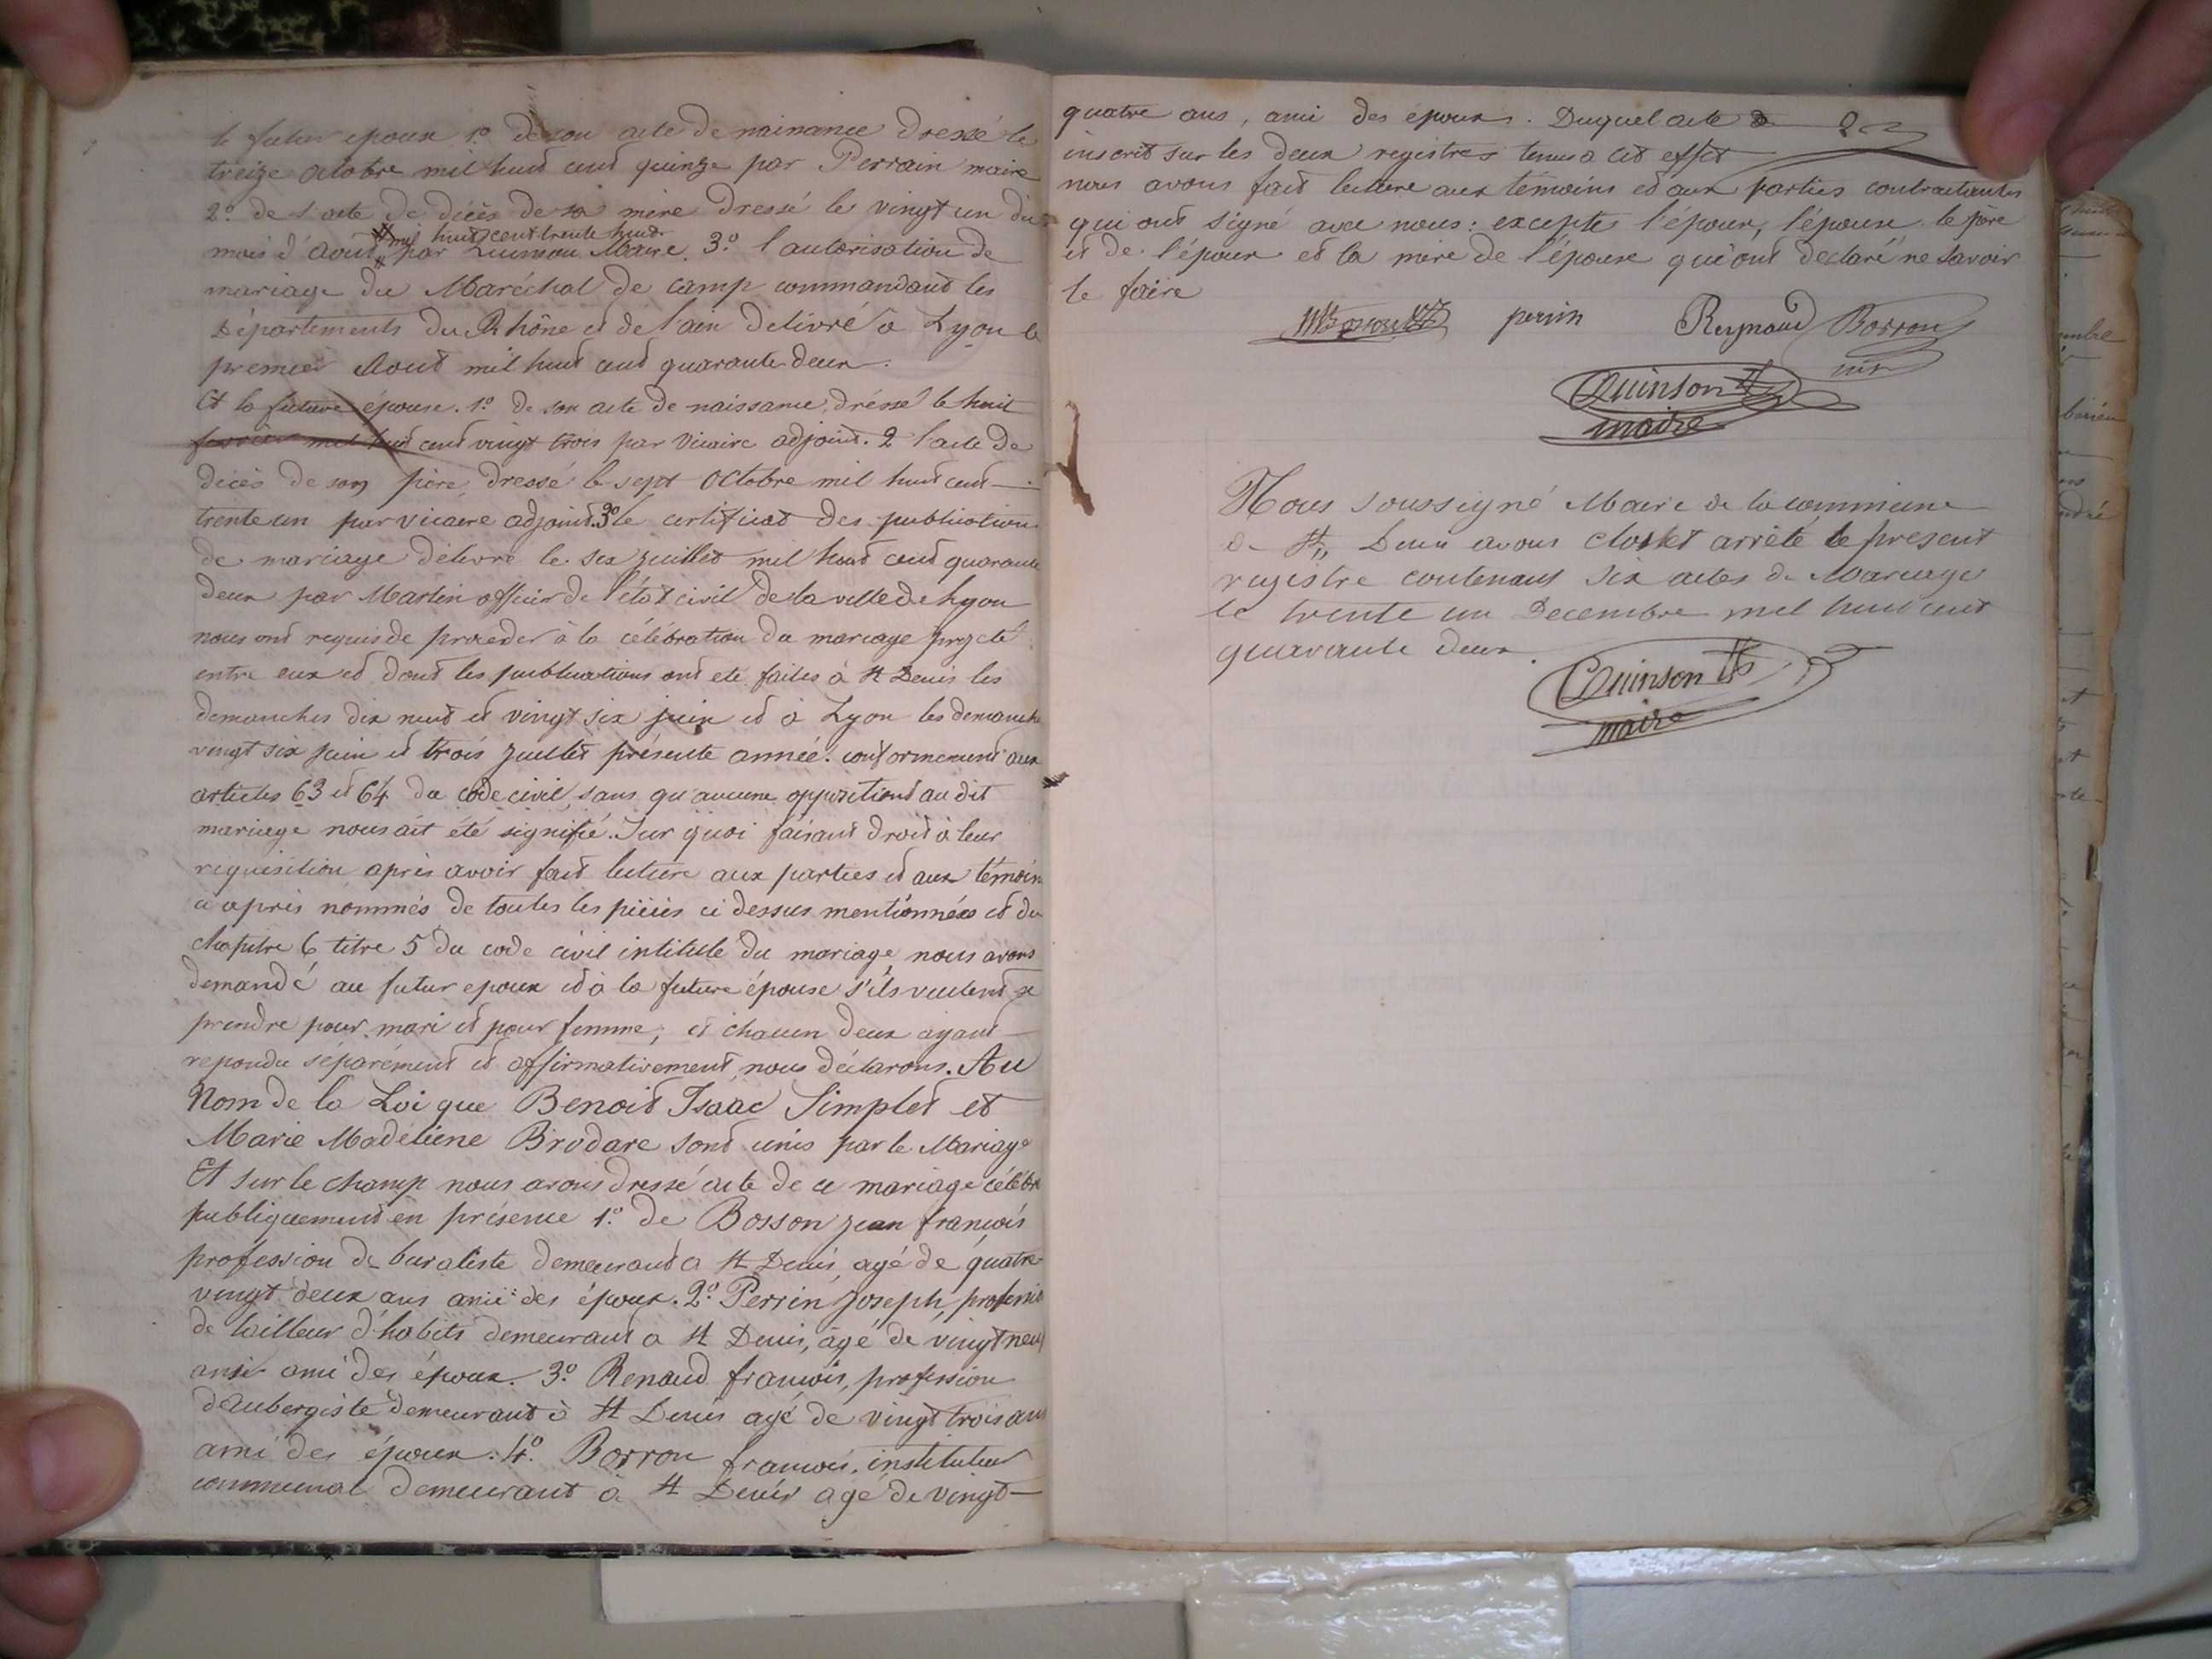 le futur epoux 1.º de son acte de naissance dressé le
treize octobre mil huit cent quinze par Perrain maire
2.º de l'acte de décès de sa mère dressé le vingt un du
mil huit cent trente huit
mois d'aout par Quinson Maire. 3.º l'autorisation de
mariage du Maréchal de camp commandant les
Départements du Rhône et de l'ain delivré à Lyon le
premier Aout mil huit cent quarante deux.
Et la future épouse. 1.º de son acte de naissance, dréssé le huit
fevrier mil huit cent vingt trois par Vicaire adjoint. 2 l'acte de
décès de son père, dressé le sept Octobre mil huit cent
trente un par vicaire adjoint. 3º le certificat des publications
de mariage délivré le six juillet mil huit cent quarante
deux par Martin officier de l'état civil de la ville de Lyon
nous ont requis de proceder à la célébration du mariage projeté
entre eux et dont les publications ont eté faites à St Denis les
demanches dix neuf et vingt six juin et à Lyon les demanche
vingt six juin et trois juillet présente année. conformement aux
articles 63 et 64 du code civil, sans qu'aucune oppositions au dit
mariage nous ait été signifié. Sur quoi faisant droit à leur
requisition après avoir fait lecture aux parties et aux témoin
ci après nommés de toutes les pièces ci dessus mentionnées et du
chapitre 6 titre 5 du code civil intitulé du mariage nous avons
demandé au futur epoux et à la future épouse s'ils veulent se
prendre pour mari et pour femme, et chacun deux ayant
repondu séparément et affirmativement, nous déclarons. Au
Nom de la Loi que Benoit Isaac Simplet et
Marie Madéleine Brodare sont unis par le Mariage
Et sur le champ nous avons dressé acte de ce mariage célébré
publiquement en présence 1.º de Bosson jean françois
profession de buraliste demeurant a St Denis, agé de quatre
vingt deux ans ami des époux. 2.º Perrin Joseph, professio
de tailleur d'habits demeurant a St Denis, âgé de vingt neuf
ans ami des époux. 3.º Renaud françois, profession
d'aubergiste demeurant à St Denis agé de vingt trois ans
ami des époux. 4.º Borron françois, instituteur
communal demeurant à St Denis agé de vingt
quatre ans, ami des époux. Duquel acte
inscrit sur les deux registres tenus a cet effet
nous avons fait lecture aux témoins et aux parties contractantes
qui ont signé avec nous: excepté l'époux, l'épouse le père
et de l'époux et la mère de l'épouse qui ont declaré ne savoir
le faire
perrin Reynaud Borron
Quinson
maire
Nous soussigné Maire de la commune
de St Denis avons clos et arrêté le present
registre contenant six actes de Mariage
le trente un Decembre mil huit cent
quarante deux.
Quinson
maire